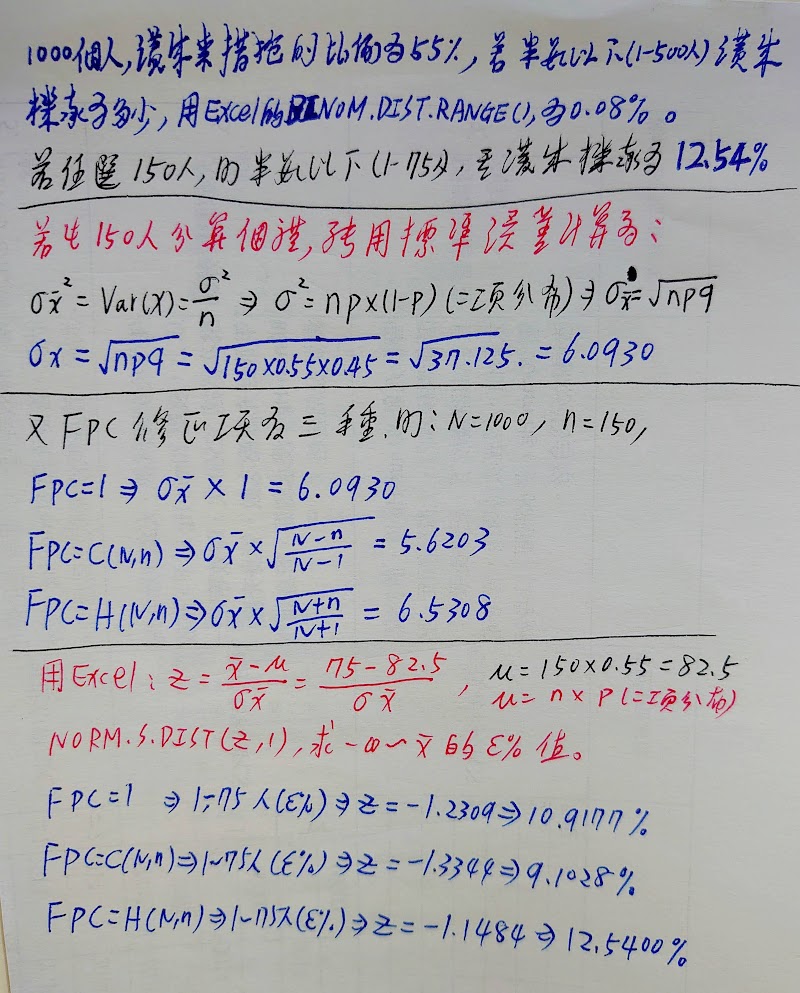 1000個人,讀朱業措拖的比例為55%,若半數以下(1-500人)讀朱
機率為多少,用Excel的BINOM.DIST.RANGE(),為0.08%。
若任選150人,的半數以下(1-75人),至讀朱機率為12.54%
若先150人分算個,改用標準誤差計算為:
σx̄² = Var(x) = σ²/n ⇒ σ² = np×(1-p) (二項分佈) ⇒ σx̄ = √npq
σx = √npq = √150×0.55×0.45 = √37.125. = 6.0930
又FPC修正項為三種.的:N=1000, n=150,
FPC=1 ⇒ σx̄ × 1 = 6.0930
FPC=C(N,n) ⇒ σx̄ × √(N-n)/(N-1) = 5.6203
FPC=H(N,n) ⇒ σx̄ × √(N+n)/(N+1) = 6.5308
用Excel: z = (x̄-μ)/σx̄ = (75-82.5)/σx̄ , μ=150×0.55=82.5
μ= n×P(二項分佈)
NORM.S.DIST(z,1),求-∞~x̄的ε%值。
FPC=1 ⇒ 1~75人(ε%) ⇒ z = -1.2309 ⇒ 10.9177%
FPC=C(N,n) ⇒ 1~75人(ε%) ⇒ z = -1.3344 ⇒ 9.1028%
FPC=H(N,n) ⇒ 1~75人(ε%) ⇒ z = -1.1484 ⇒ 12.5400%